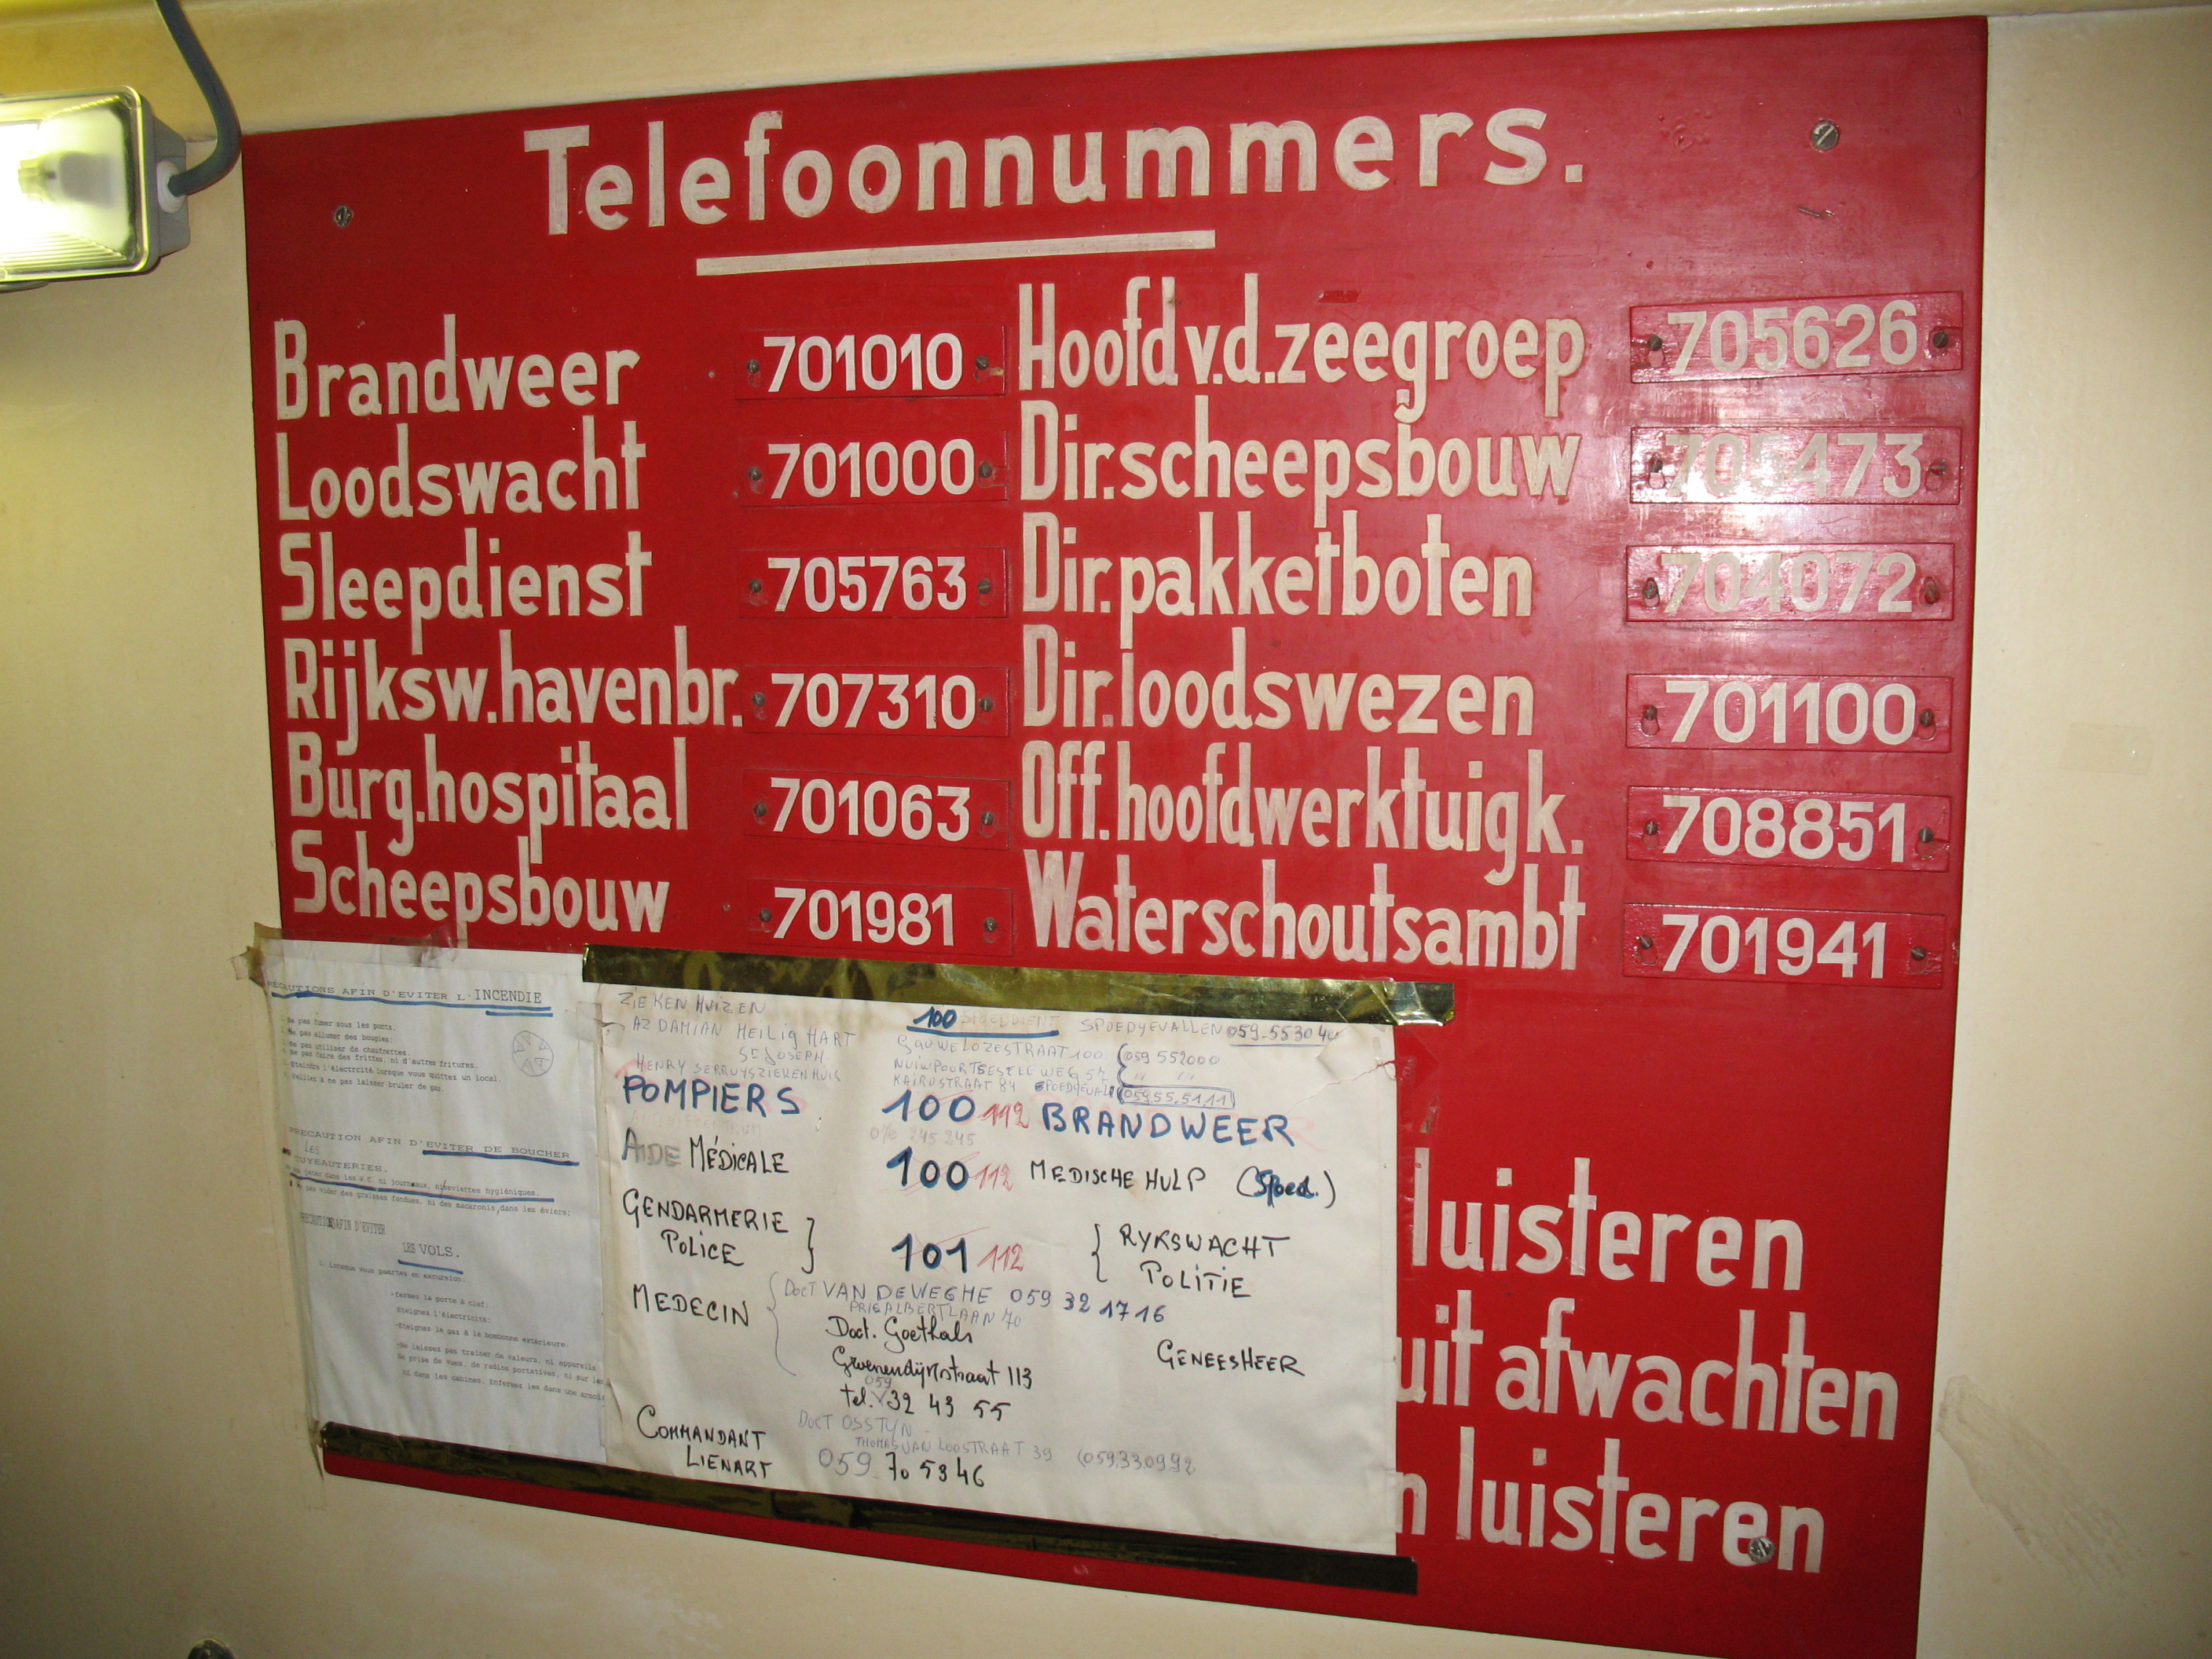 Telefoonnummers.
Brandweer 701010
Loodswacht 701000
Sleepdienst 705763
Rijksw.havenbr. 707310
Burg.hospitaal 701063
Scheepsbouw 701981
Hoofd v.d.zeegroep 705626
Dir.scheepsbouw 705473
Dir.pakketboten 704072
Dir.loodswezen 701100
Off.hoofdwerktuigk. 708851
Waterschoutsambt 701941
luisteren
uit afwachten
n luisteren
PRECAUTIONS AFIN D'EVITER L'INCENDIE
Ne pas fumer sous les ponts.
Ne pas allumer des bougies.
Ne pas utiliser de chaufrettes.
Ne pas faire des frittes, ni d'autres fritures.
Eteindre l'électrcité lorsque vous quittez un local.
Veiller à ne pas laisser bruler de gaz.
PRECAUTION AFIN D'EVITER DE BOUCHER
LES
TUYEAUTERIES.
Ne pas jeter dans les w.c. ni journaux, ni serviettes hygiéniques.
Ne pas vider des graisses fondues, ni des macaronis, dans les éviers;
PRECAUTION AFIN D'EVITER
LES VOLS.
1. Lorsque vous partez en excursion.
-fermez la porte à clef;
Eteignez l'électricité;
-Eteignez le gaz à la bombonne extérieure.
-Ne laissez pas trainer de valeurs, ni appareils
de prise de vues, de radios portatives, ni sur les
ni dans les cabines. Enfermez les dans une armoi
ZIEKENHUIZEN 100 SPOEDGEVALLEN 059-553040
AZ DAMIAN HEILIG HART GOUWELOZESTRAAT 100 (059 552000
ST JOSEPH NUIWPOORTSESTEEWEG 57 " "
HENRY SERRUYSZIEKENHUIS KAIROSTRAAT 84 SPOEDGEVAL (059.55.51.11)
POMPIERS 100 112 BRANDWEER
245 245
AIDE MÉDICALE 100 112 MEDISCHE HULP (Spoed.)
GENDARMERIE
POLICE } 101 112 { RYKSWACHT
POLITIE
MEDECIN { Doct VAN DE WEGHE 059 32 17 16
ALBERTLAAN 70
Doct. Goethals GENEESHEER
Groenendijkstraat 113
059
tel. 32 43 55
COMMANDANT
LIENART 059 70 53 46
DOCT OSSTYN
THOMAS VAN LOOSTRAAT 39 (059.33.09.92